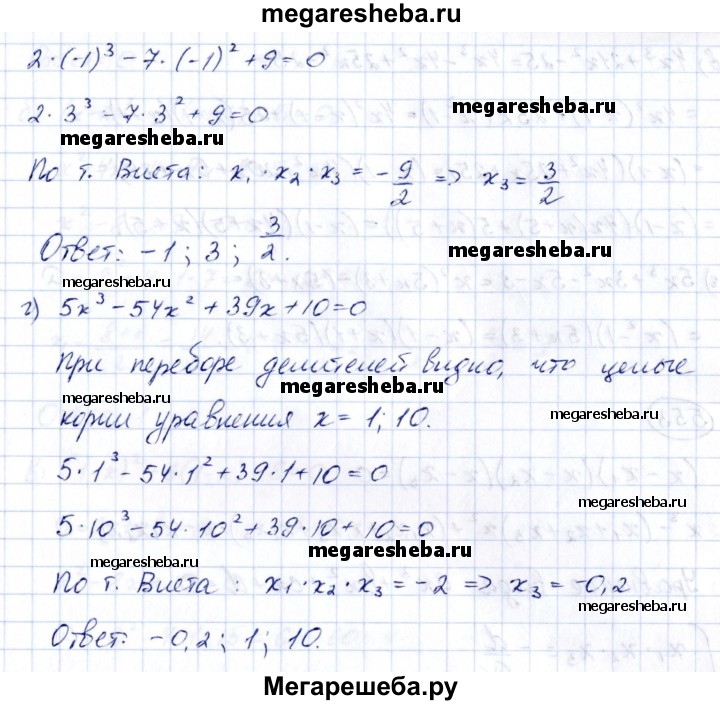 megaresheba.ru
2·(-1)³ - 7·(-1)² + 9 = 0
2·3³ - 7·3² + 9 = 0
megaresheba.ru
megaresheba.ru
По т. Виета: x₁·x₂·x₃ = -9/2 => x₃ = 3/2
Ответ: -1; 3; 3/2.
megaresheba.ru
megaresheba.ru
г) 5x³ - 54x² + 39x + 10 = 0
При переборе делителей видно, что целые
megaresheba.ru
корни уравнения x = 1; 10.
megaresheba.ru
5·1³ - 54·1² + 39·1 + 10 = 0
megaresheba.ru
5·10³ - 54·10² + 39·10 + 10 = 0
megaresheba.ru
megaresheba.ru
По т. Виета: x₁·x₂·x₃ = -2 => x₃ = -0,2
megaresheba.ru
Ответ: -0,2; 1; 10.
Мегарешеба.ру